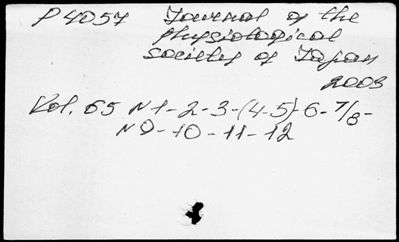 P 4057 Journal of the
physiological
society of Japan
2003
Vol. 65 N 1-2-3-(4-5)-6-7/8-
N 9-10-11-12